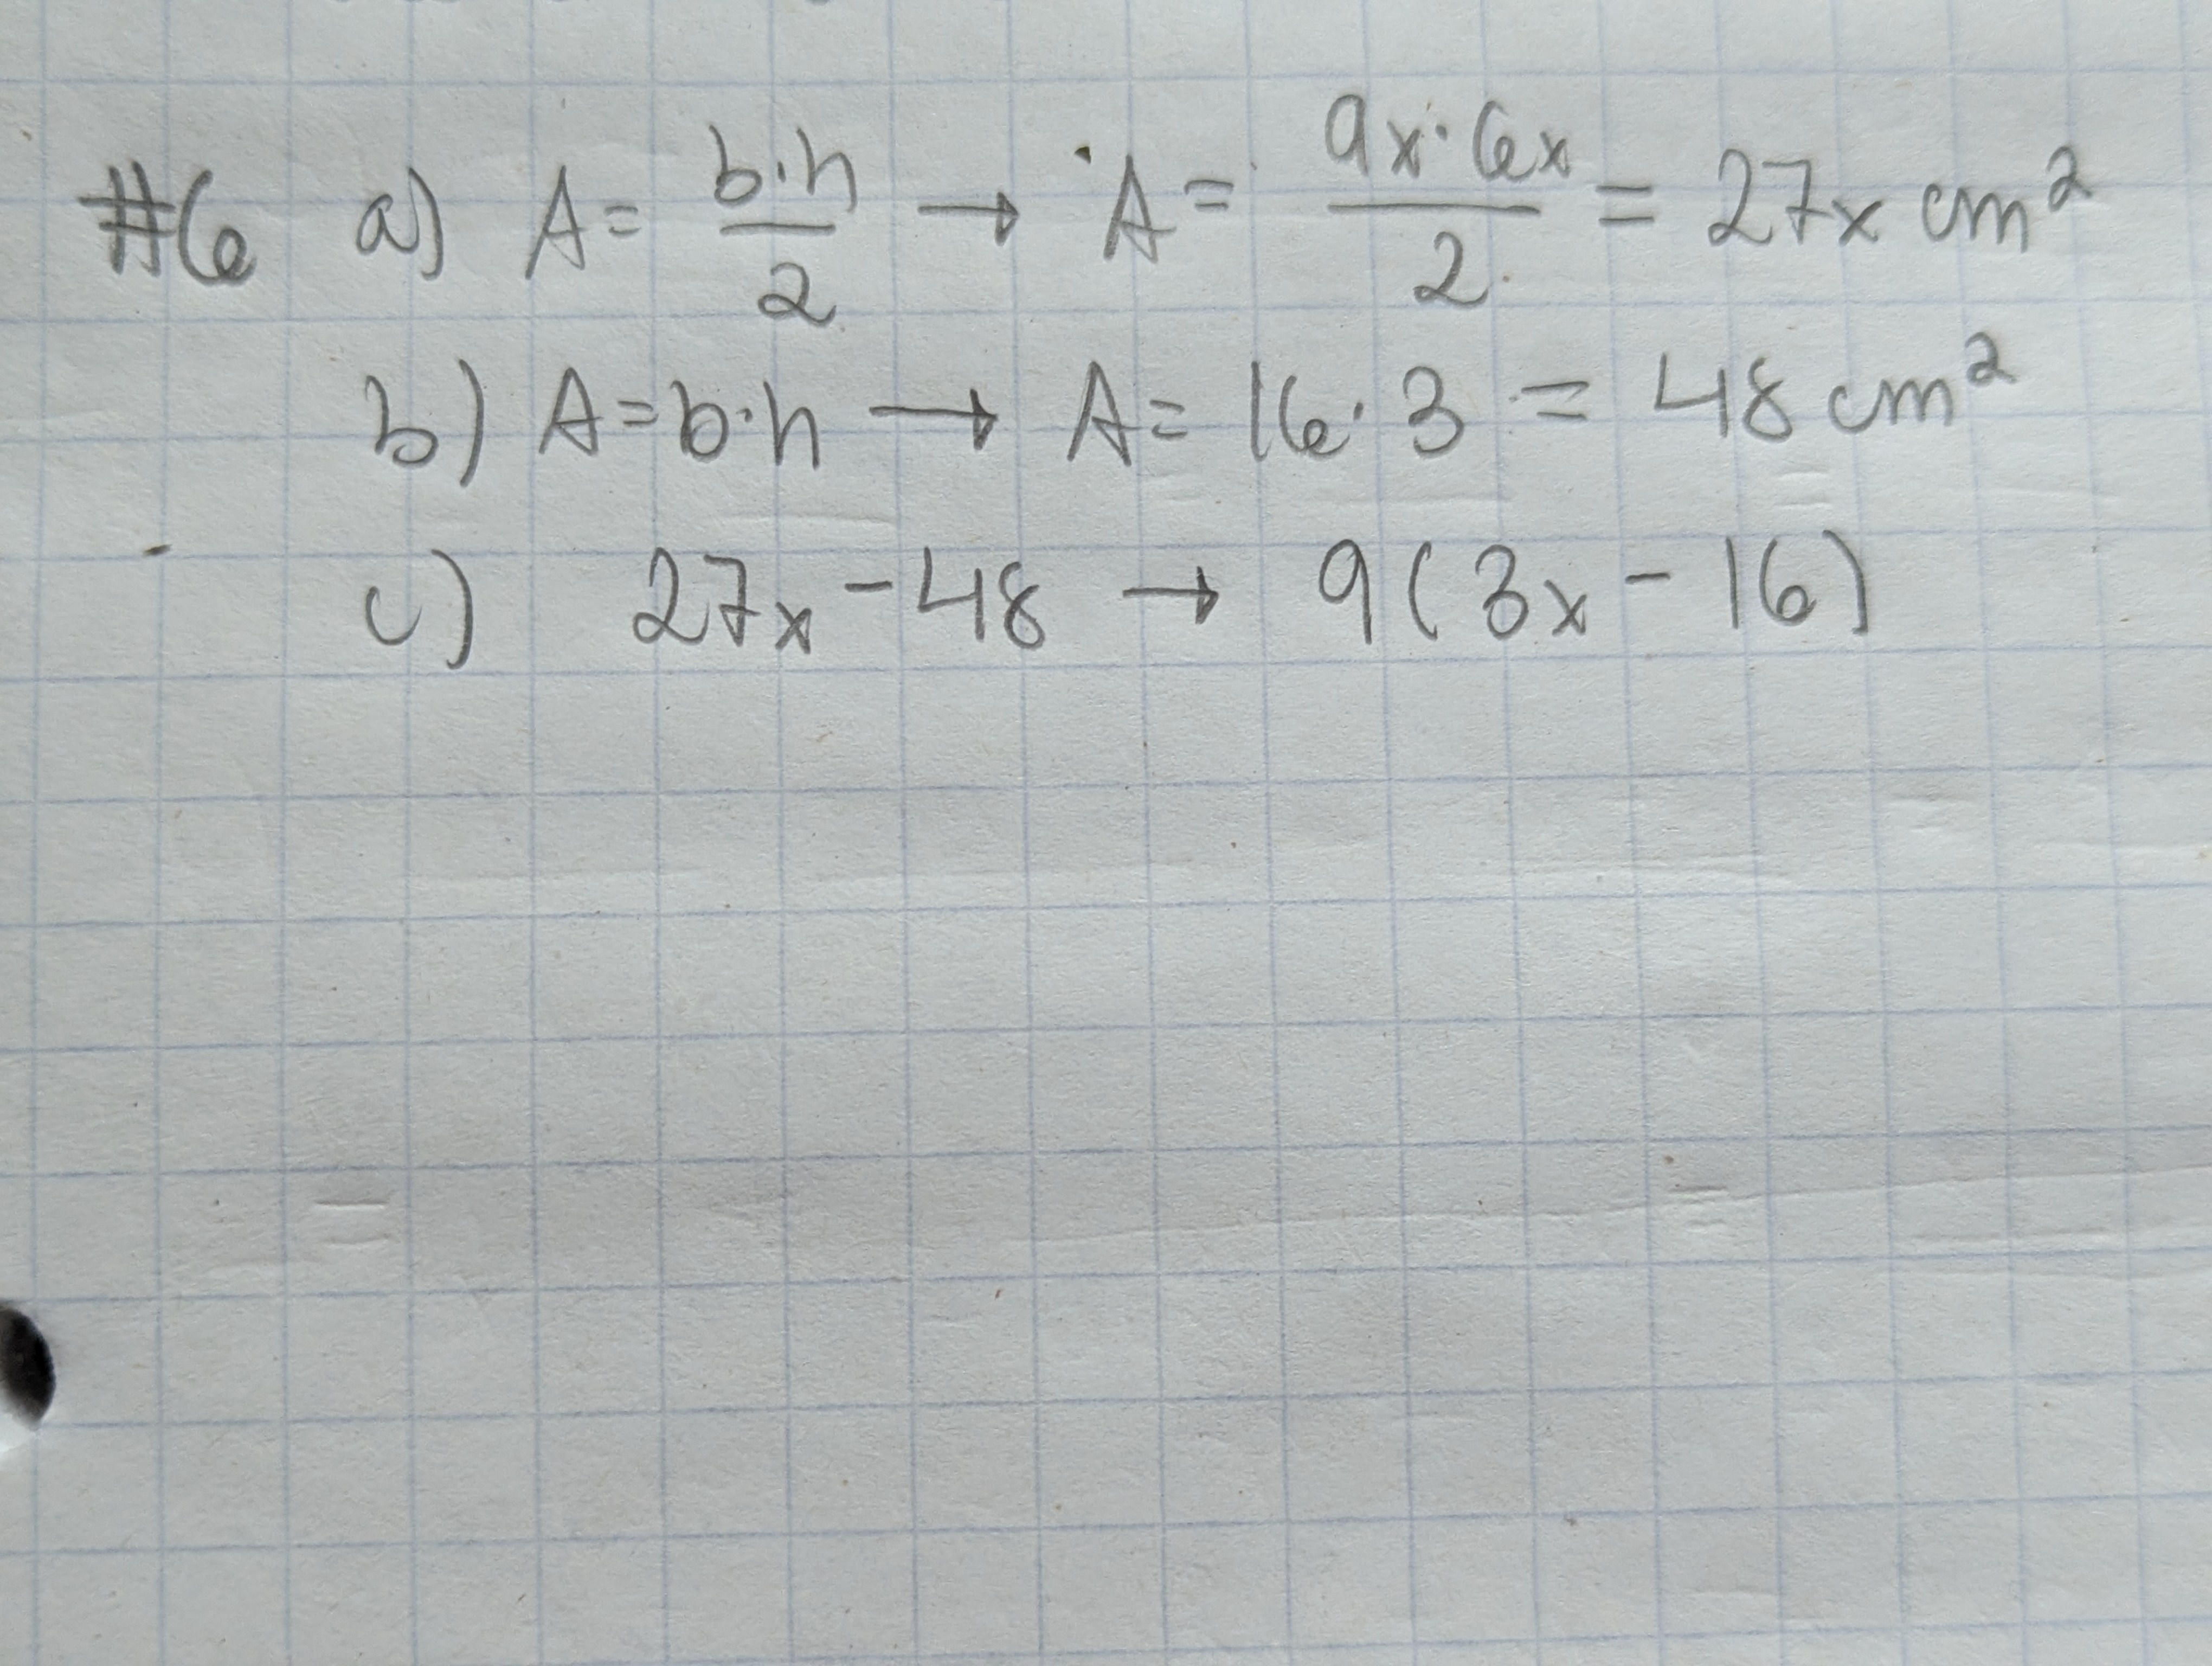 #6 a) A = b·h/2 → A = 9x·6x/2 = 27x cm²
b) A = b·h → A = 16·3 = 48 cm²
c) 27x - 48 → 9(3x - 16)